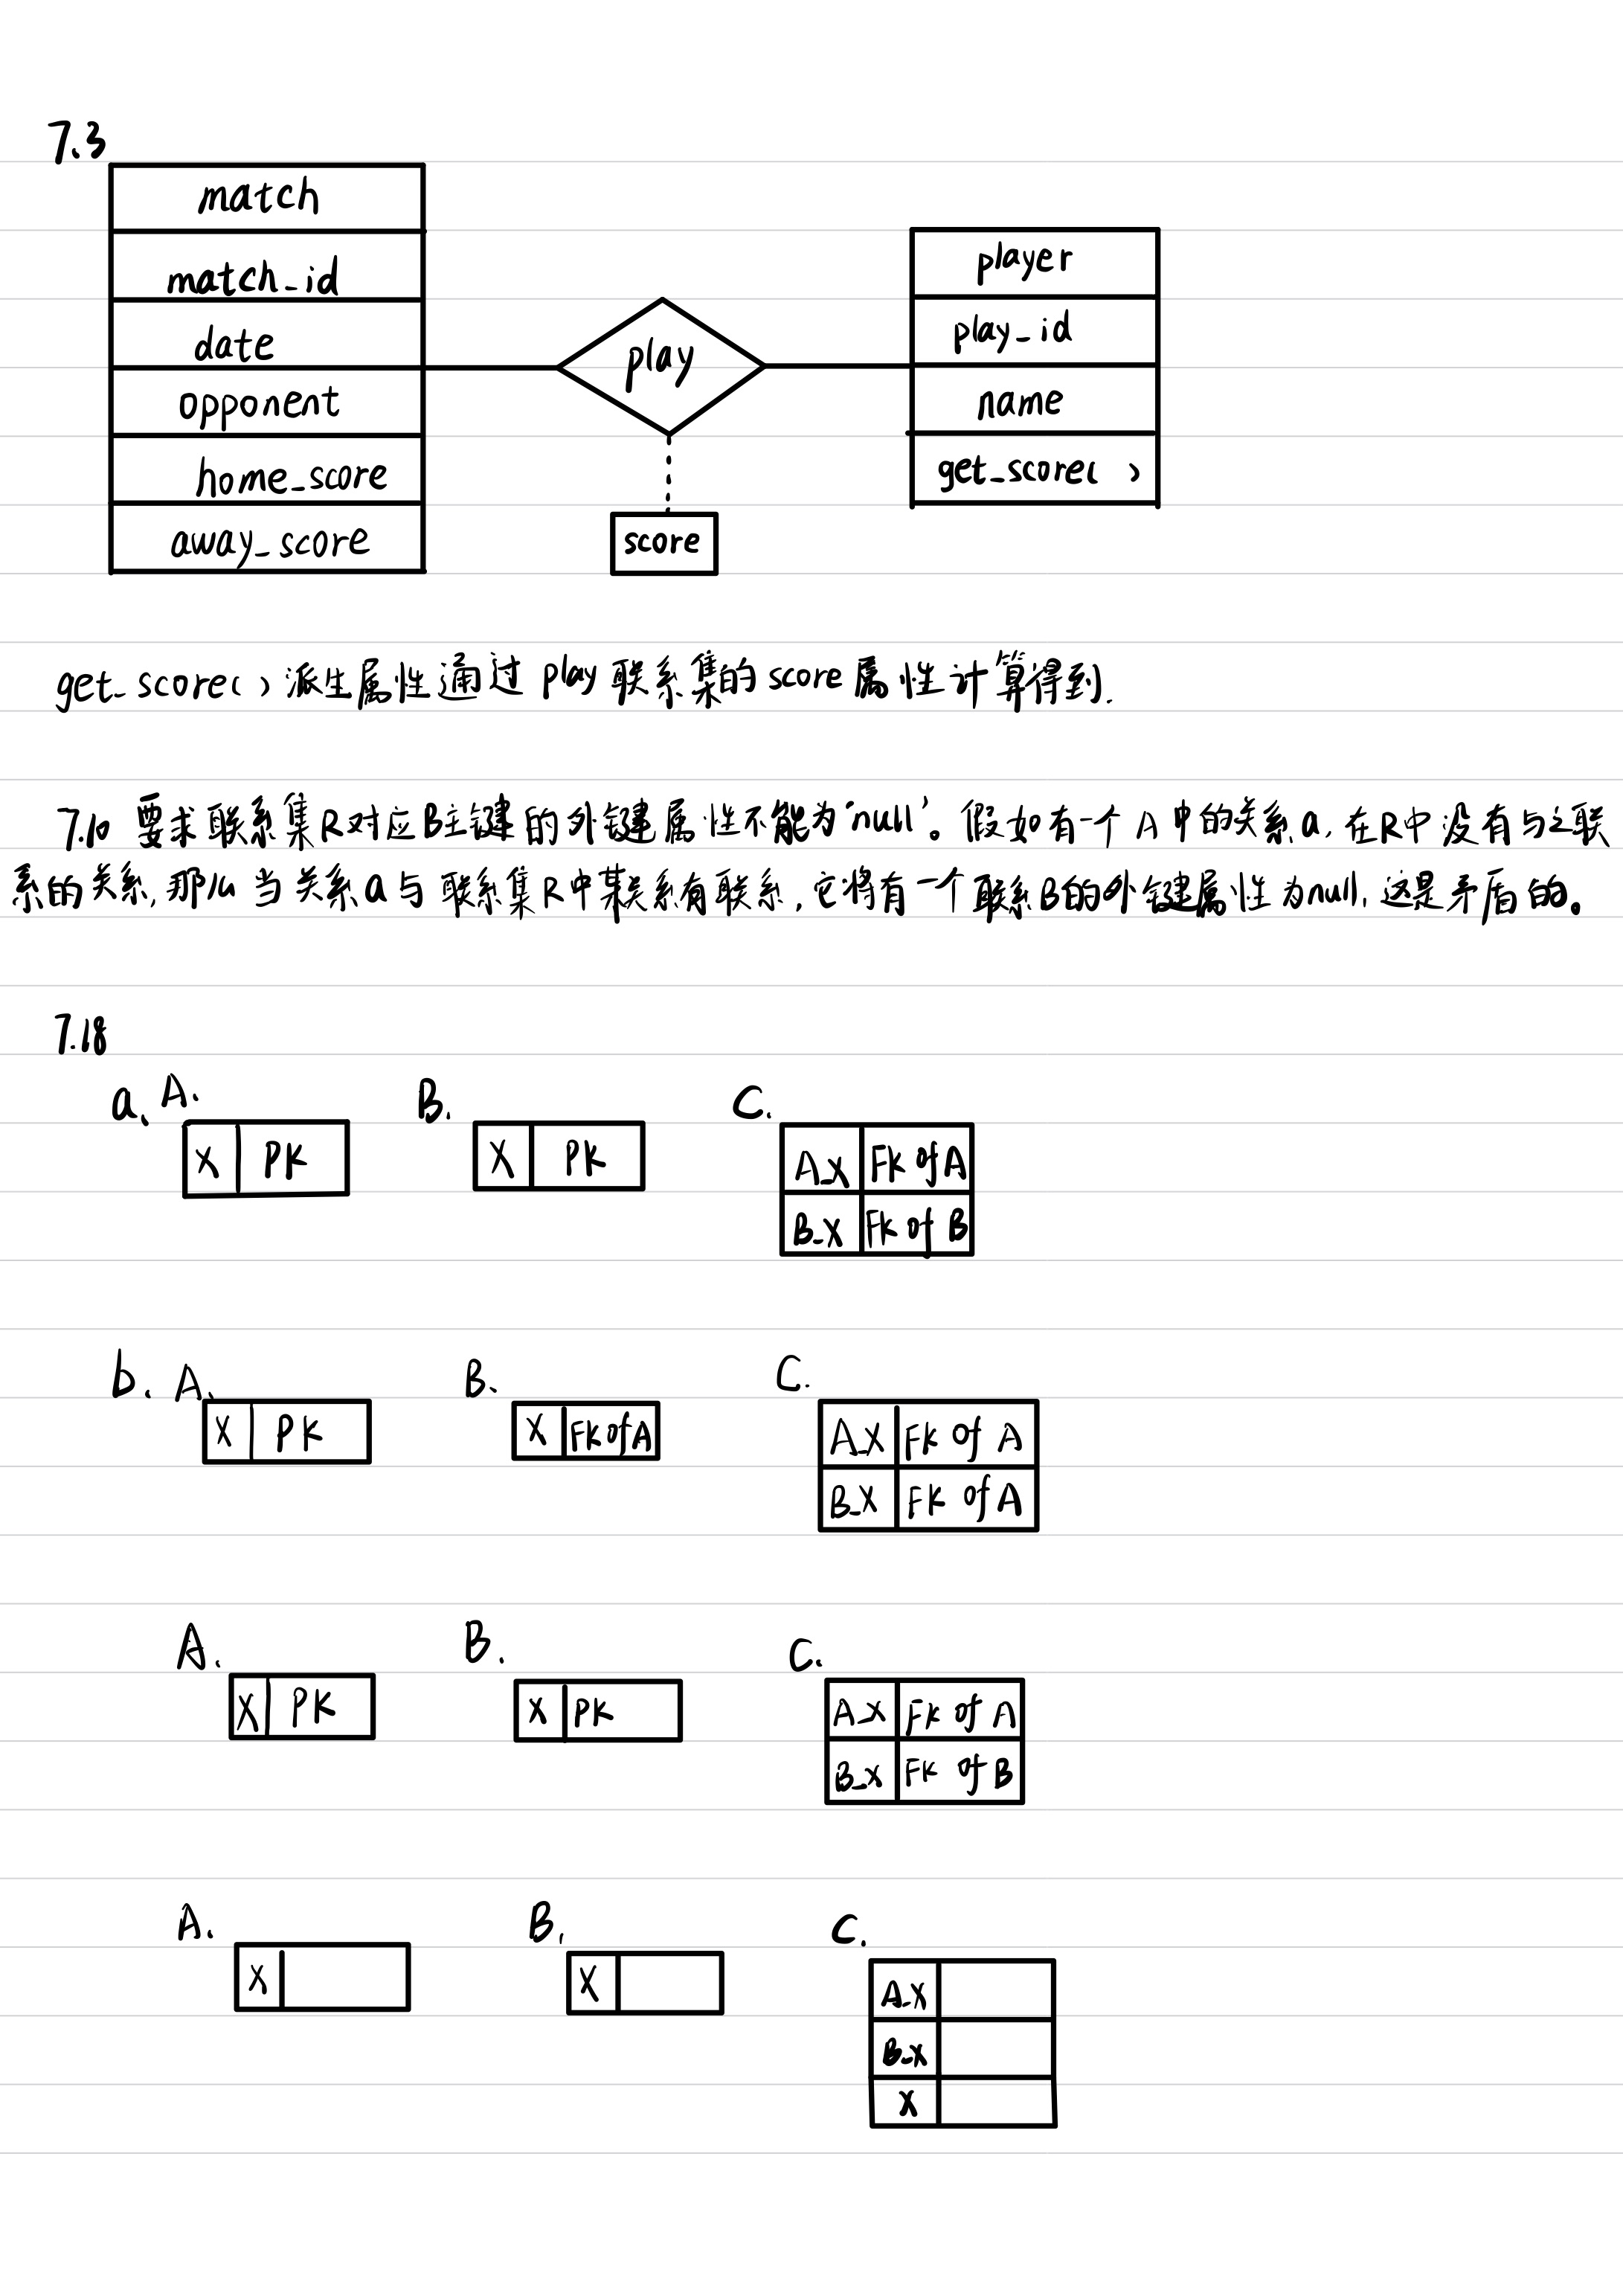 7.3
match
match_id
date
opponent
home_score
away_score
play
score
player
play_id
name
get_score( )
get_score( ) 派生属性通过 play 联系集的 score 属性计算得到.
7.10 要求联系集R对应B主键的外键属性不能为'null'。假如有一个A中的关系a,在R中没有与之联
系的关系,那么当关系a与联系集R中某关系有联系,它将有一个联系B的外键属性为null,这是矛盾的。
7.18
a. A. B. C.
X PK X PK A_X FK of A
B_X FK of B
b. A. B. C.
X PK X FK of A A_X FK of A
B_X FK of A
A. B. C.
X PK X PK A_X FK of A
B_X FK of B
A. B. C.
X X A_X
B_X
X